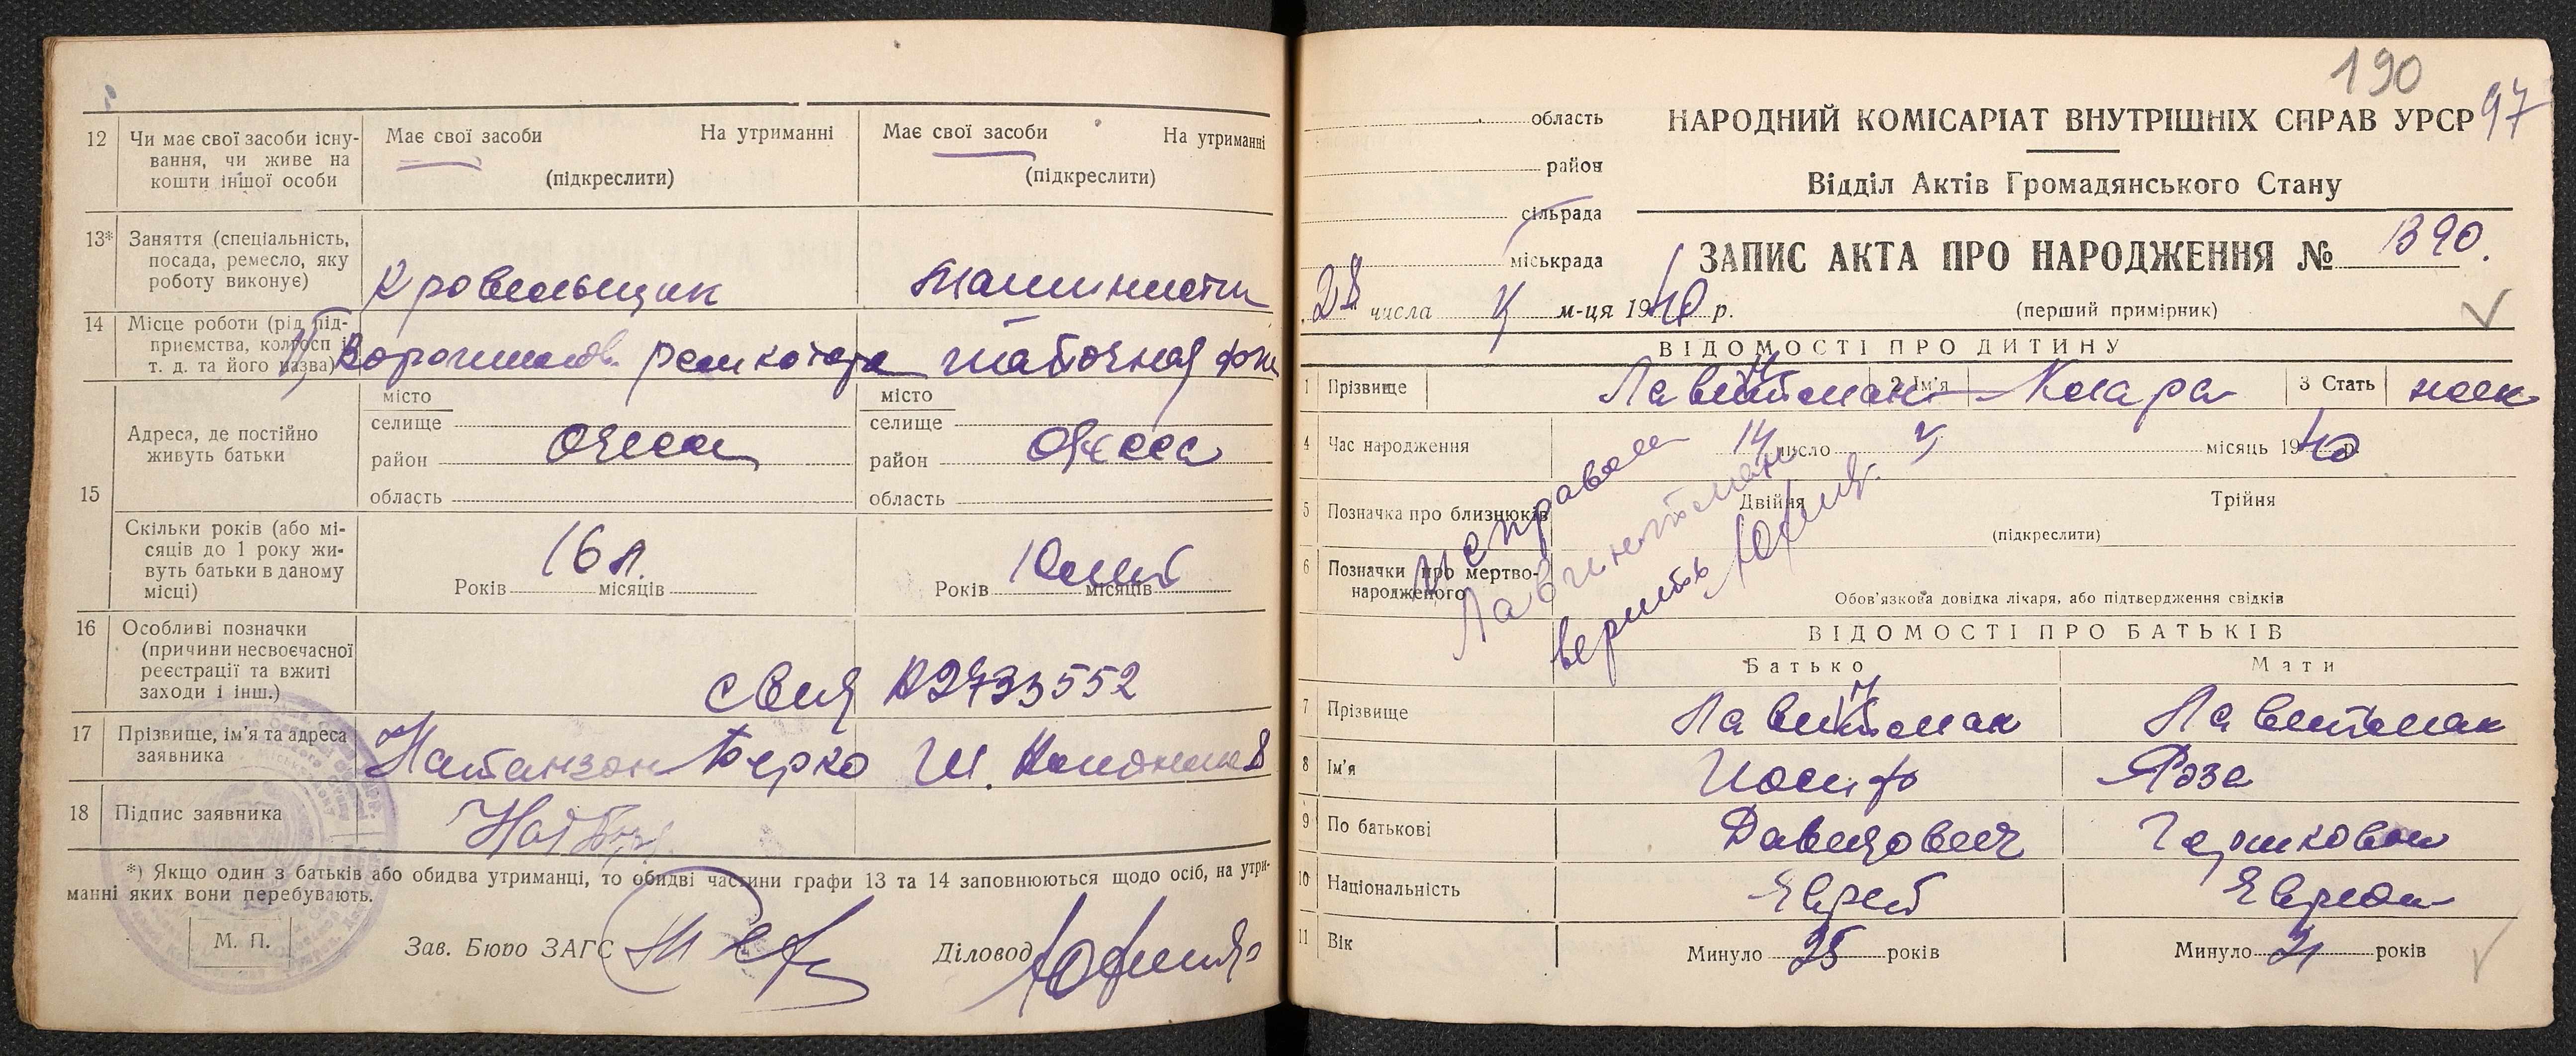 12 Чи має свої засоби існу-
вання, чи живе на
кошти іншої особи
Має свої засоби На утриманні
(підкреслити)
Має свої засоби На утриманні
(підкреслити)
13* Заняття (спеціальність,
посада, ремесло, яку
роботу виконує)
Кровельщик
Машинистк
14 Місце роботи (рід під-
приємства, колгосп і
т. д. та його назва)
табочная
15 Адреса, де постійно
живуть батьки
місто
селище
район
область
Одесса
місто
селище
район
область
Одесса
Скільки років (або мі-
сяців до 1 року жи-
вуть батьки в даному
місці)
16 л.
Років місяців
10 лет
Років місяців
16 Особливі позначки
(причини несвоєчасної
реєстрації та вжиті
заходи і інш.)
17 Прізвище, ім'я та адреса
заявника
Натанзон Берко
18 Підпис заявника
*) Якщо один з батьків або обидва утриманці, то обидві частини графи 13 та 14 заповнюються щодо осіб, на утри-
манні яких вони перебувають.
М. П.
Зав. Бюро ЗАГС
Діловод
190
97
область
район
сільрада
міськрада
НАРОДНИЙ КОМІСАРІАТ ВНУТРІШНІХ СПРАВ УРСР
Відділ Актів Громадянського Стану
ЗАПИС АКТА ПРО НАРОДЖЕННЯ № 1390.
28 числа м-ця 1940 р.
(перший примірник)
ВІДОМОСТІ ПРО ДИТИНУ
1 Прізвище Лавинтман 2 Ім'я Клара 3 Стать жен
4 Час народження 14 число місяць 1940 р.
5 Позначка про близнюків
Двійня Трійня
(підкреслити)
6 Позначки про мертво-
народженого
Обов'язкова довідка лікаря, або підтвердження свідків
исправлен
Лавинтман
верить
ВІДОМОСТІ ПРО БАТЬКІВ
Батько Мати
7 Прізвище Лавинтман Лавинтман
8 Ім'я Иосиф Роза
9 По батькові Давидович Гершковна
10 Національність Еврей Еврейка
11 Вік Минуло 25 років Минуло 21 років